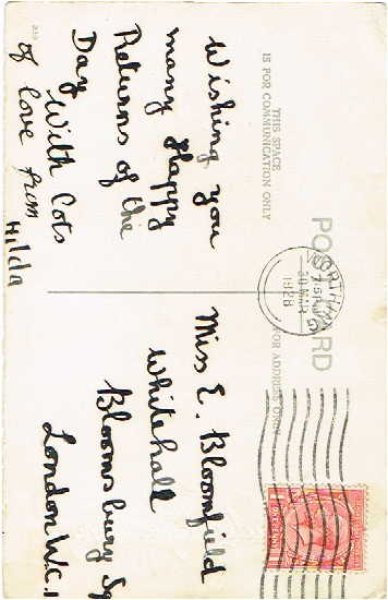 POST CARD
THIS SPACE
IS FOR COMMUNICATION ONLY
FOR ADDRESS ONLY
Wishing you
many Happy
Returns of the
Day
With Lots
of love from
Hilda
WORTHING
30 MAR
1928
Miss E. Bloomfield
Whitehall
Bloomsbury Sq
London W.C.1